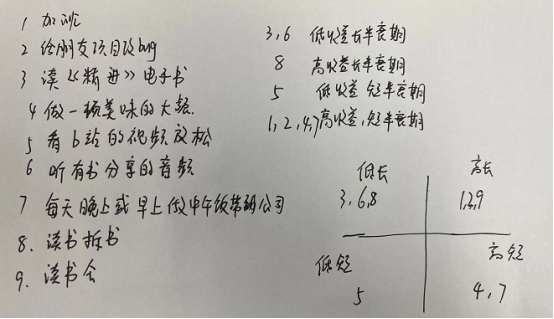 1 加班
2 给朋友项目改bug
3 读《精进》电子书
4 做一顿美味的大餐
5 看b站的视频放松
6 听有书分享的音频
7 每天晚上或早上做中午饭带到公司
8. 读书拆书
9. 读书会
3,6 低收益长半衰期
8 高收益长半衰期
5 低收益 短半衰期
1,2,4,7高收益,短半衰期
低长
3,6,8
高长
1,2,9
低短
5
高短
4,7